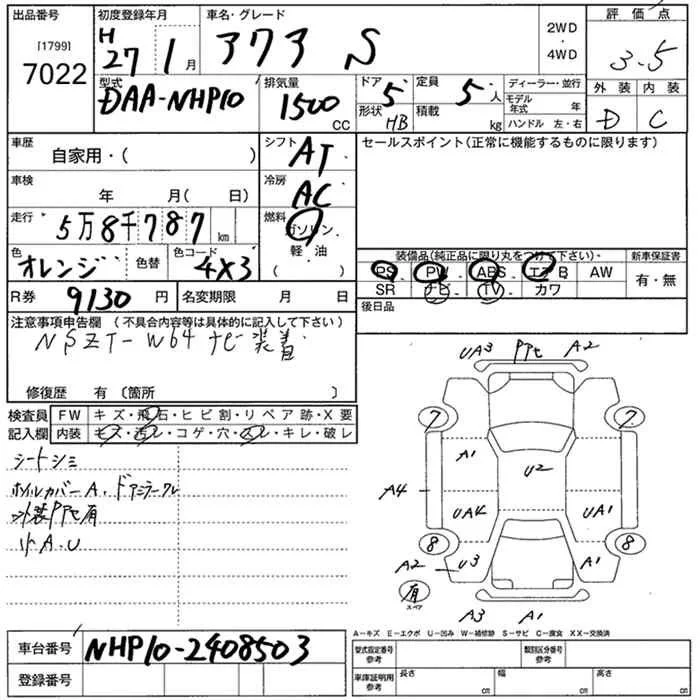 出品番号
[1799]
7022
初度登録年月
H
27年 1月
車名・グレード
アクア S
2WD
・
4WD
評価点
3.5
型式
DAA-NHP10
排気量
1500
CC
ドア
5
形状
HB
定員
5人
積載
kg
ディーラー・並行
モデル年式 年
ハンドル 左・右
外装 内装
D C
車歴
自家用・( )
シフト
AT
セールスポイント(正常に機能するものに限ります)
車検
年 月( 日)
冷房
AC
走行
5万8千787 km
燃料
ガソリン
軽・油
( )
色
オレンジ
色替
色コード
4X3
装備品(純正品に限り丸をつけて下さい)
新車保証書
PS PW ABS エアB AW
有・無
SR ナビ TV カワ
R券 9130 円
名変期限 月 日
後日品
注意事項申告欄 (不具合内容等は具体的に記入して下さい)
NSZT-W64 ナビ装着
修復歴 有(箇所 )
検査員
記入欄
FW キズ・飛石・ヒビ割・リペア跡・X要
内装 キズ・汚レ・コゲ・穴・スレ・キレ・破レ
シートシミ
ホイルカバーA.ドアミラースレ
外装PPセ有
リドA.U
UA3 PPセ A2
7 7
A1
U2
A4
UA4 UA1
8 8
A2 U3 A1
有
スペア
A3 A1
A-キズ E-エクボ U-凹み W-補修跡 S-サビ C-腐食 XX-交換済
車台番号 NHP10-2408503
登録番号
型式指定番号
参考
類別区分番号
参考
車庫証明用
参考
長さ cm
幅 cm
高さ cm